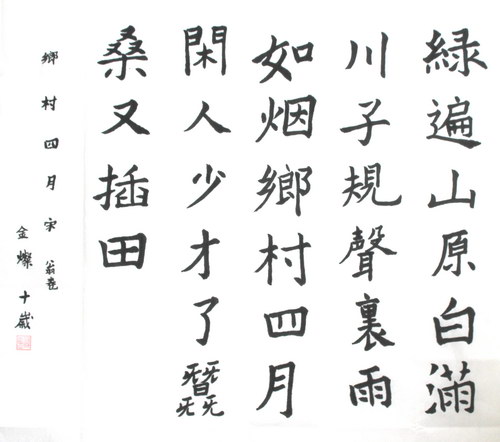 綠遍山原白滿
川子規聲裏雨
如烟鄉村四月
閑人少才了蠶
桑又插田
鄉村四月宋翁卷
金燦十歲